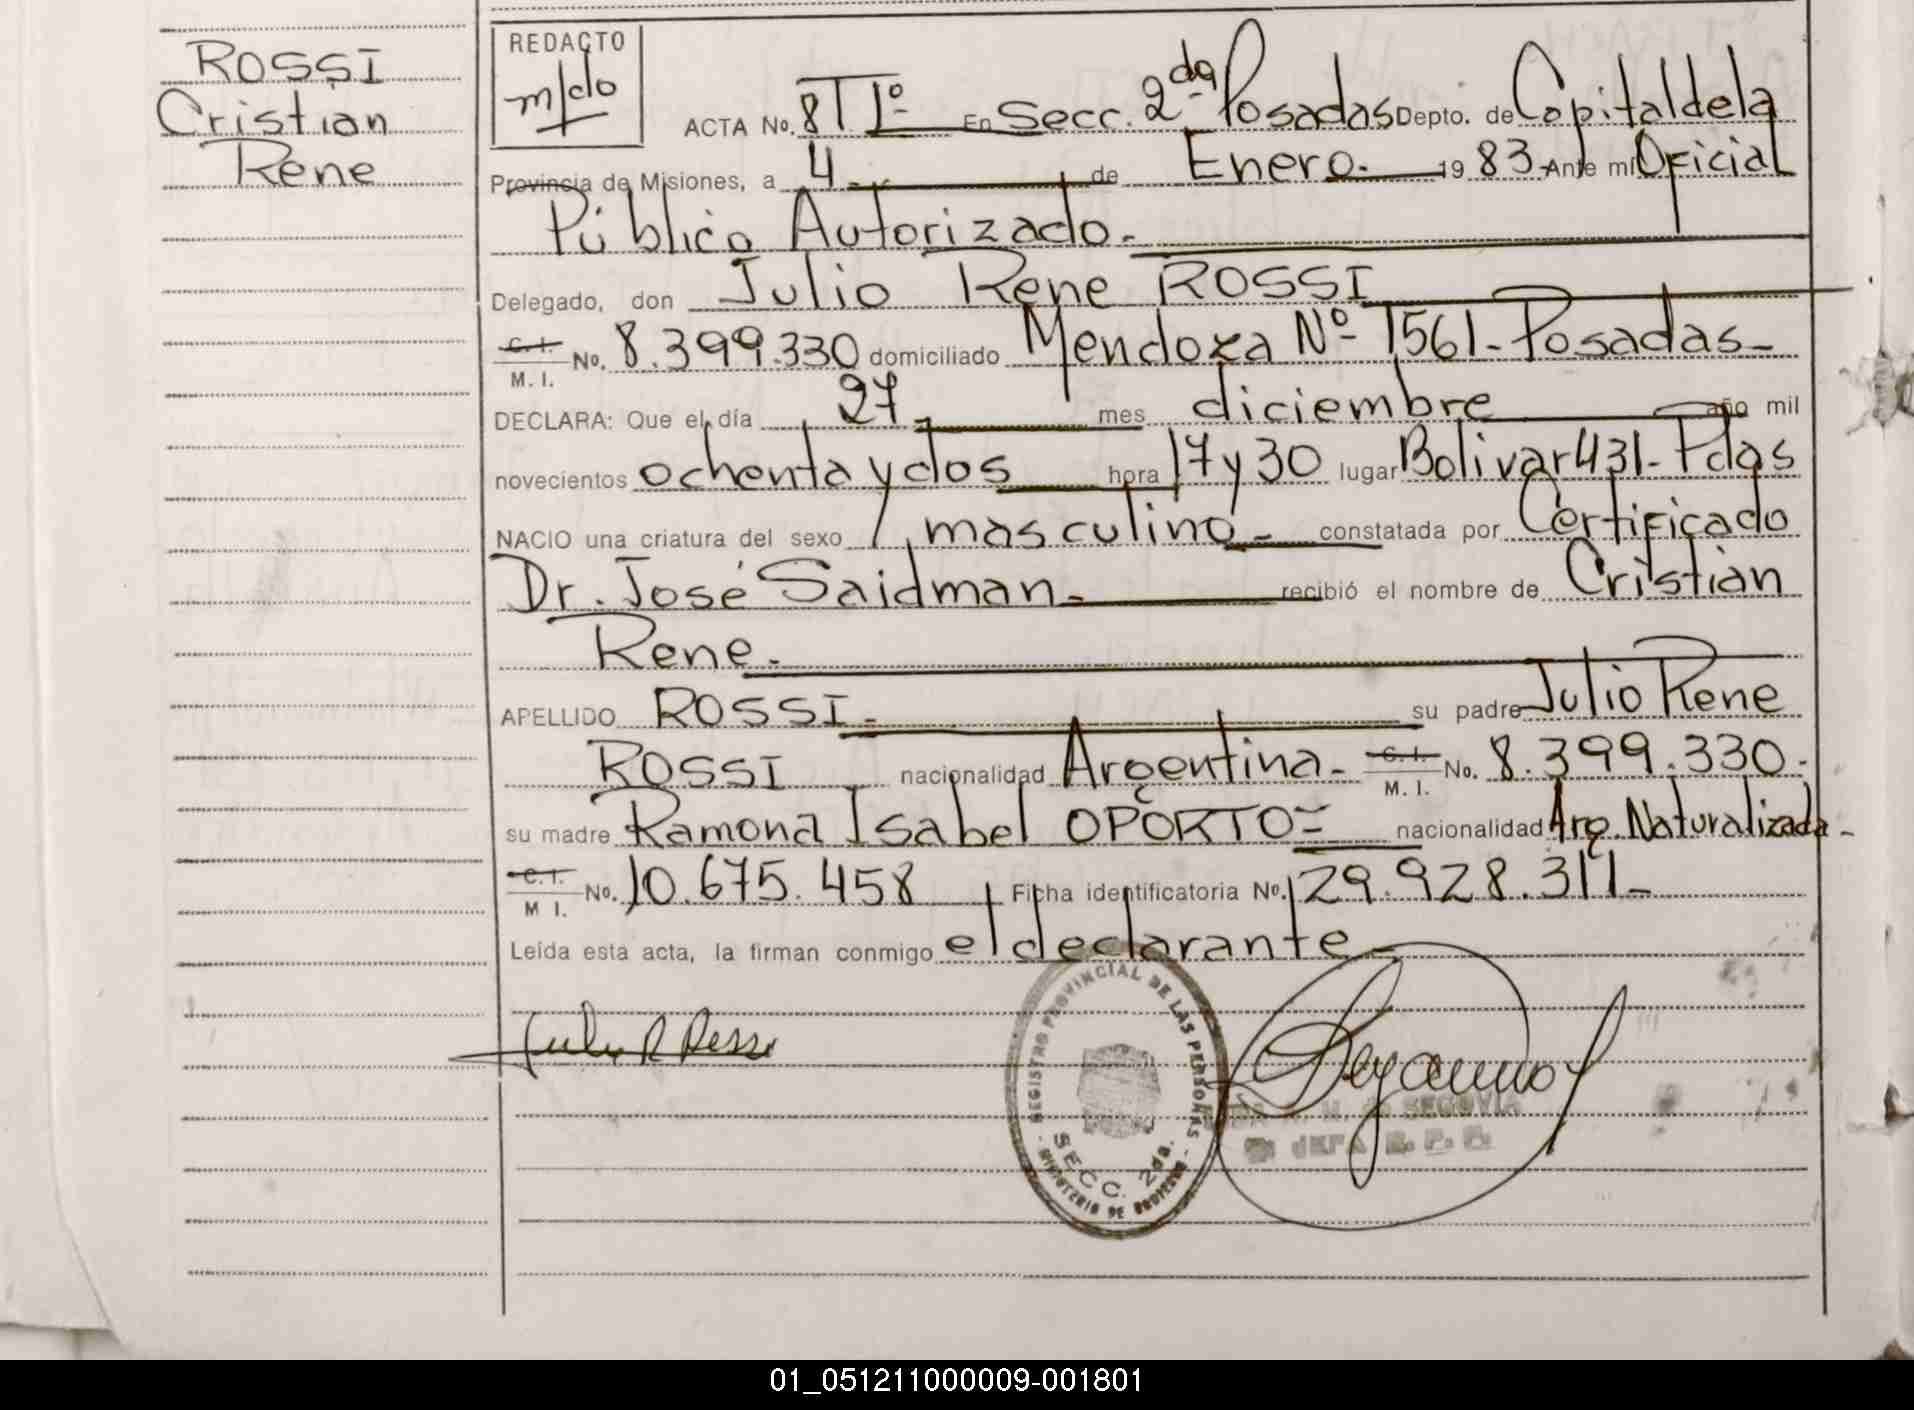 ROSSI
Cristian
Rene
REDACTO
m/do
ACTA No. 8 T 1º En Secc. 2da Posadas Depto. de Capital de la
Provincia de Misiones, a 4 de Enero. 1983 Ante mí Oficial
Público Autorizado.
Delegado, don Julio Rene ROSSI
C. I.
M. I. No. 8.399.330 domiciliado Mendoza Nº 1561 - Posadas
DECLARA: Que el día 27 mes diciembre año mil
novecientos ochenta y dos hora 17 y 30 lugar Bolivar 431 - Pdas
NACIO una criatura del sexo masculino constatada por Certificado
Dr. José Saidman recibió el nombre de Cristian
Rene.
APELLIDO ROSSI su padre Julio Rene
ROSSI nacionalidad Argentina C. I.
M. I. No. 8.399.330.
su madre Ramona Isabel OPORTO nacionalidad Arg. Naturalizada
C. I.
M I. No. 10.675.458 Ficha identificatoria No. 29.928.311
Leída esta acta, la firman conmigo el declarante
Julio R Rossi
REGISTRO PROVINCIAL DE LAS PERSONAS
SECC. 2da.
SEGOVIA
JEFA R. P. P.
01_051211000009-001801